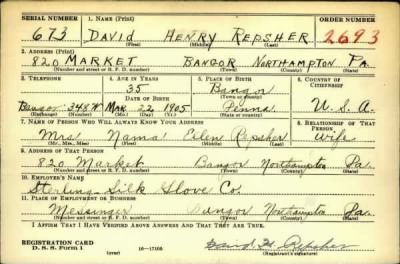 SERIAL NUMBER 1. NAME (Print) ORDER NUMBER
673 DAVID HENRY REPSHER 2693
(First) (Middle) (Last)
2. ADDRESS (Print)
820 MARKET BANGOR NORTHAMPTON PA.
(Number and street or R. F. D. number) (Town) (County) (State)
3. TELEPHONE 4. AGE IN YEARS 5. PLACE OF BIRTH 6. COUNTRY OF CITIZENSHIP
35 Bangor
DATE OF BIRTH (Town or county)
Bangor 348 Mar 22 1905 Penna U. S. A.
(Exchange) (Number) (Mo.) (Day) (Yr.) (State or country)
7. NAME OF PERSON WHO WILL ALWAYS KNOW YOUR ADDRESS 8. RELATIONSHIP OF THAT PERSON
Mrs Nama Ellen Repsher Wife
(Mr., Mrs., Miss) (First) (Middle) (Last)
9. ADDRESS OF THAT PERSON
820 Market Bangor Northampton Pa.
(Number and street or R. F. D. number) (Town) (County) (State)
10. EMPLOYER'S NAME
Sterling Silk Glove Co.
11. PLACE OF EMPLOYMENT OR BUSINESS
Messinger Bangor Northampton Pa.
(Number and street or R. F. D. number) (Town) (County) (State)
I AFFIRM THAT I HAVE VERIFIED ABOVE ANSWERS AND THAT THEY ARE TRUE.
REGISTRATION CARD
D. S. S. Form 1 (over) 16—17105 David H. Repsher
(Registrant's signature)